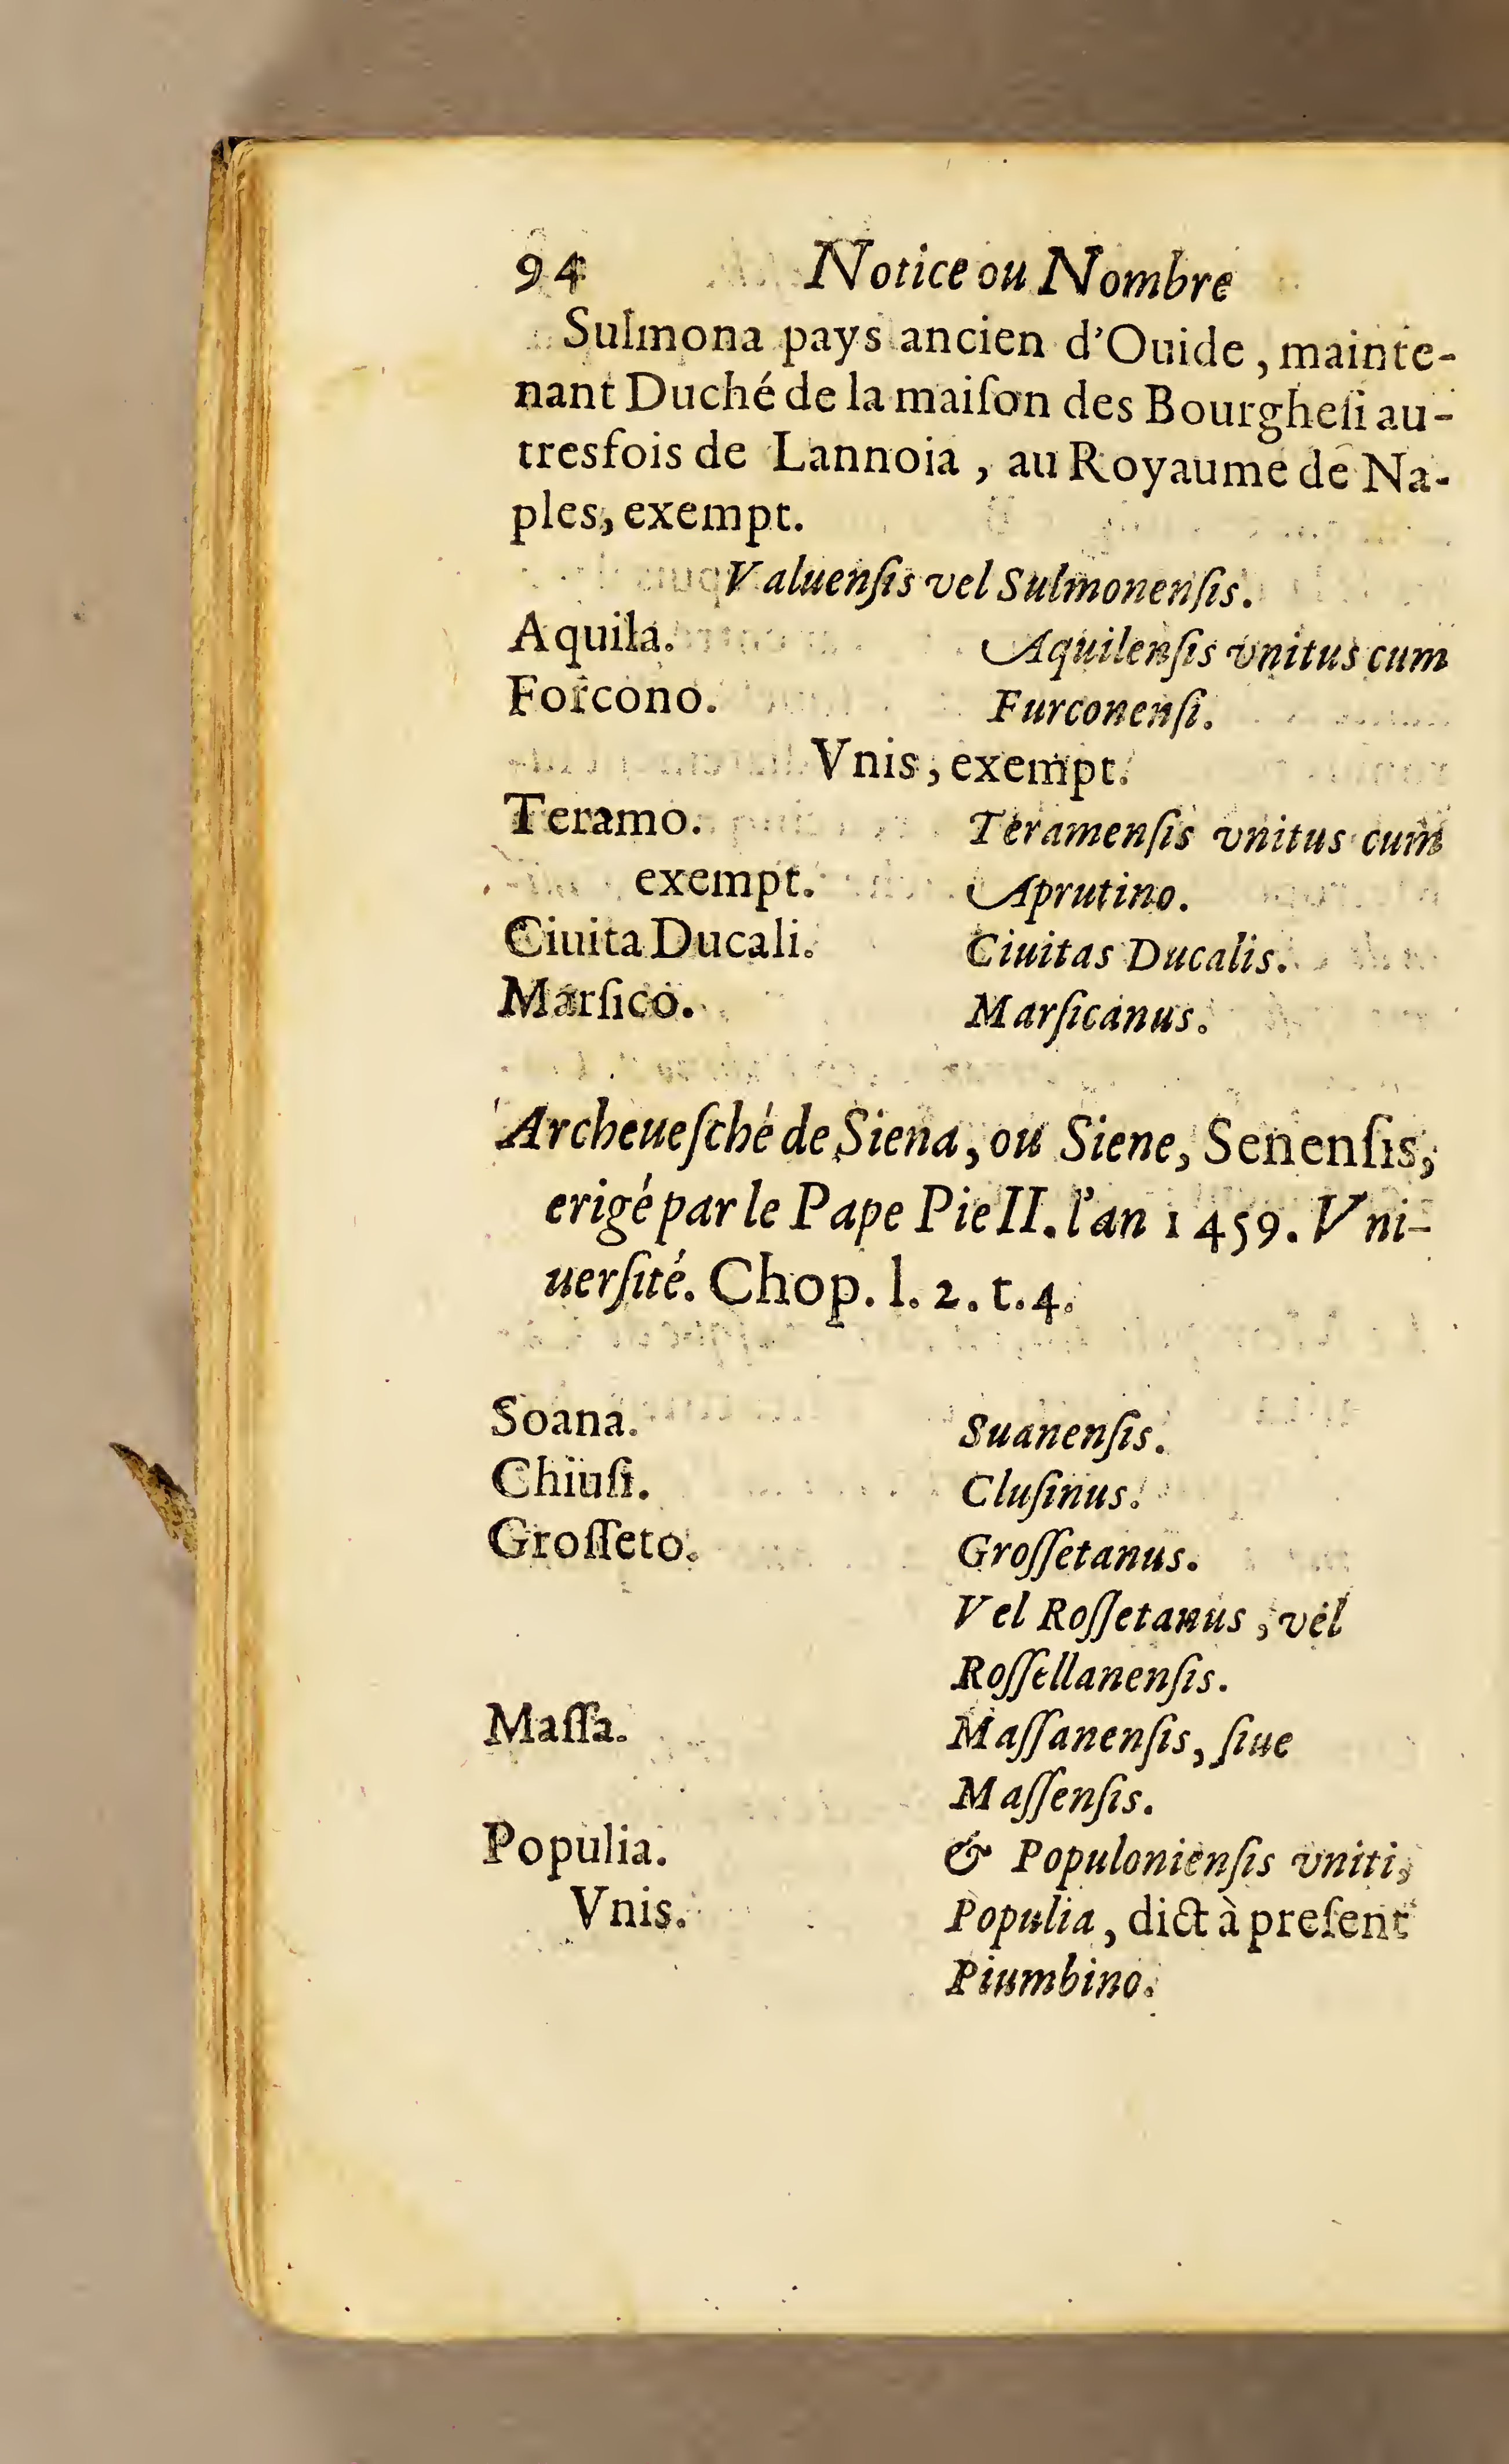 94 Notice ou Nombre
Sulmona pays ancien d'Ouide, mainte-
nant Duché de la maiſon des Bourgheſi au-
tresfois de Lannoia, au Royaume de Na-
ples, exempt.
Valuenſis vel Sulmonenſis.
Aquila. Aquilenſis vnitus cum
Forcono. Furconenſi.
Vnis, exempt.
Teramo. Teramenſis vnitus cum
exempt. Aprutino.
Ciuita Ducali. Ciuitas Ducalis.
Marſico. Marſicanus.
Archeueſché de Siena, ou Siene, Senenſis,
erigé par le Pape Pie II. l'an 1459. Vni-
uerſité. Chop. l. 2. t. 4.
Soana. Suanenſis.
Chiuſi. Cluſinus.
Groſſeto. Groſſetanus.
Vel Roſſetanus, vel
Roſſellanenſis.
Maſſa. Maſſanenſis, ſiue
Maſſenſis.
Populia. & Populonienſis vniti,
Vnis. Populia, dict à preſent
Piumbino.